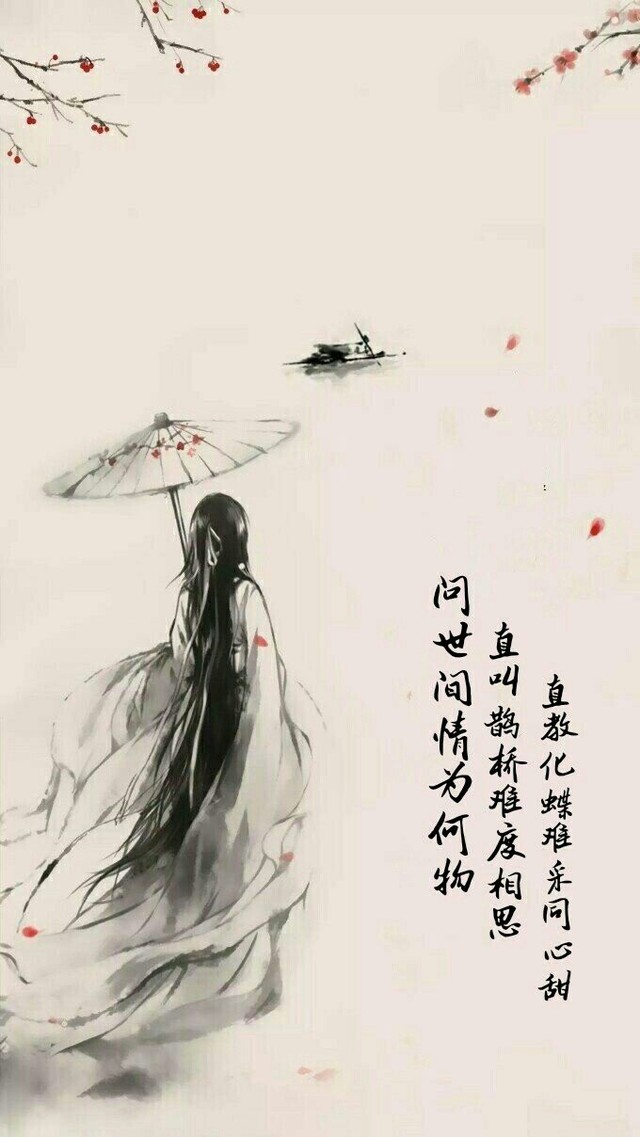 问世间情为何物
直叫鹊桥难度相思
直教化蝶难采同心甜